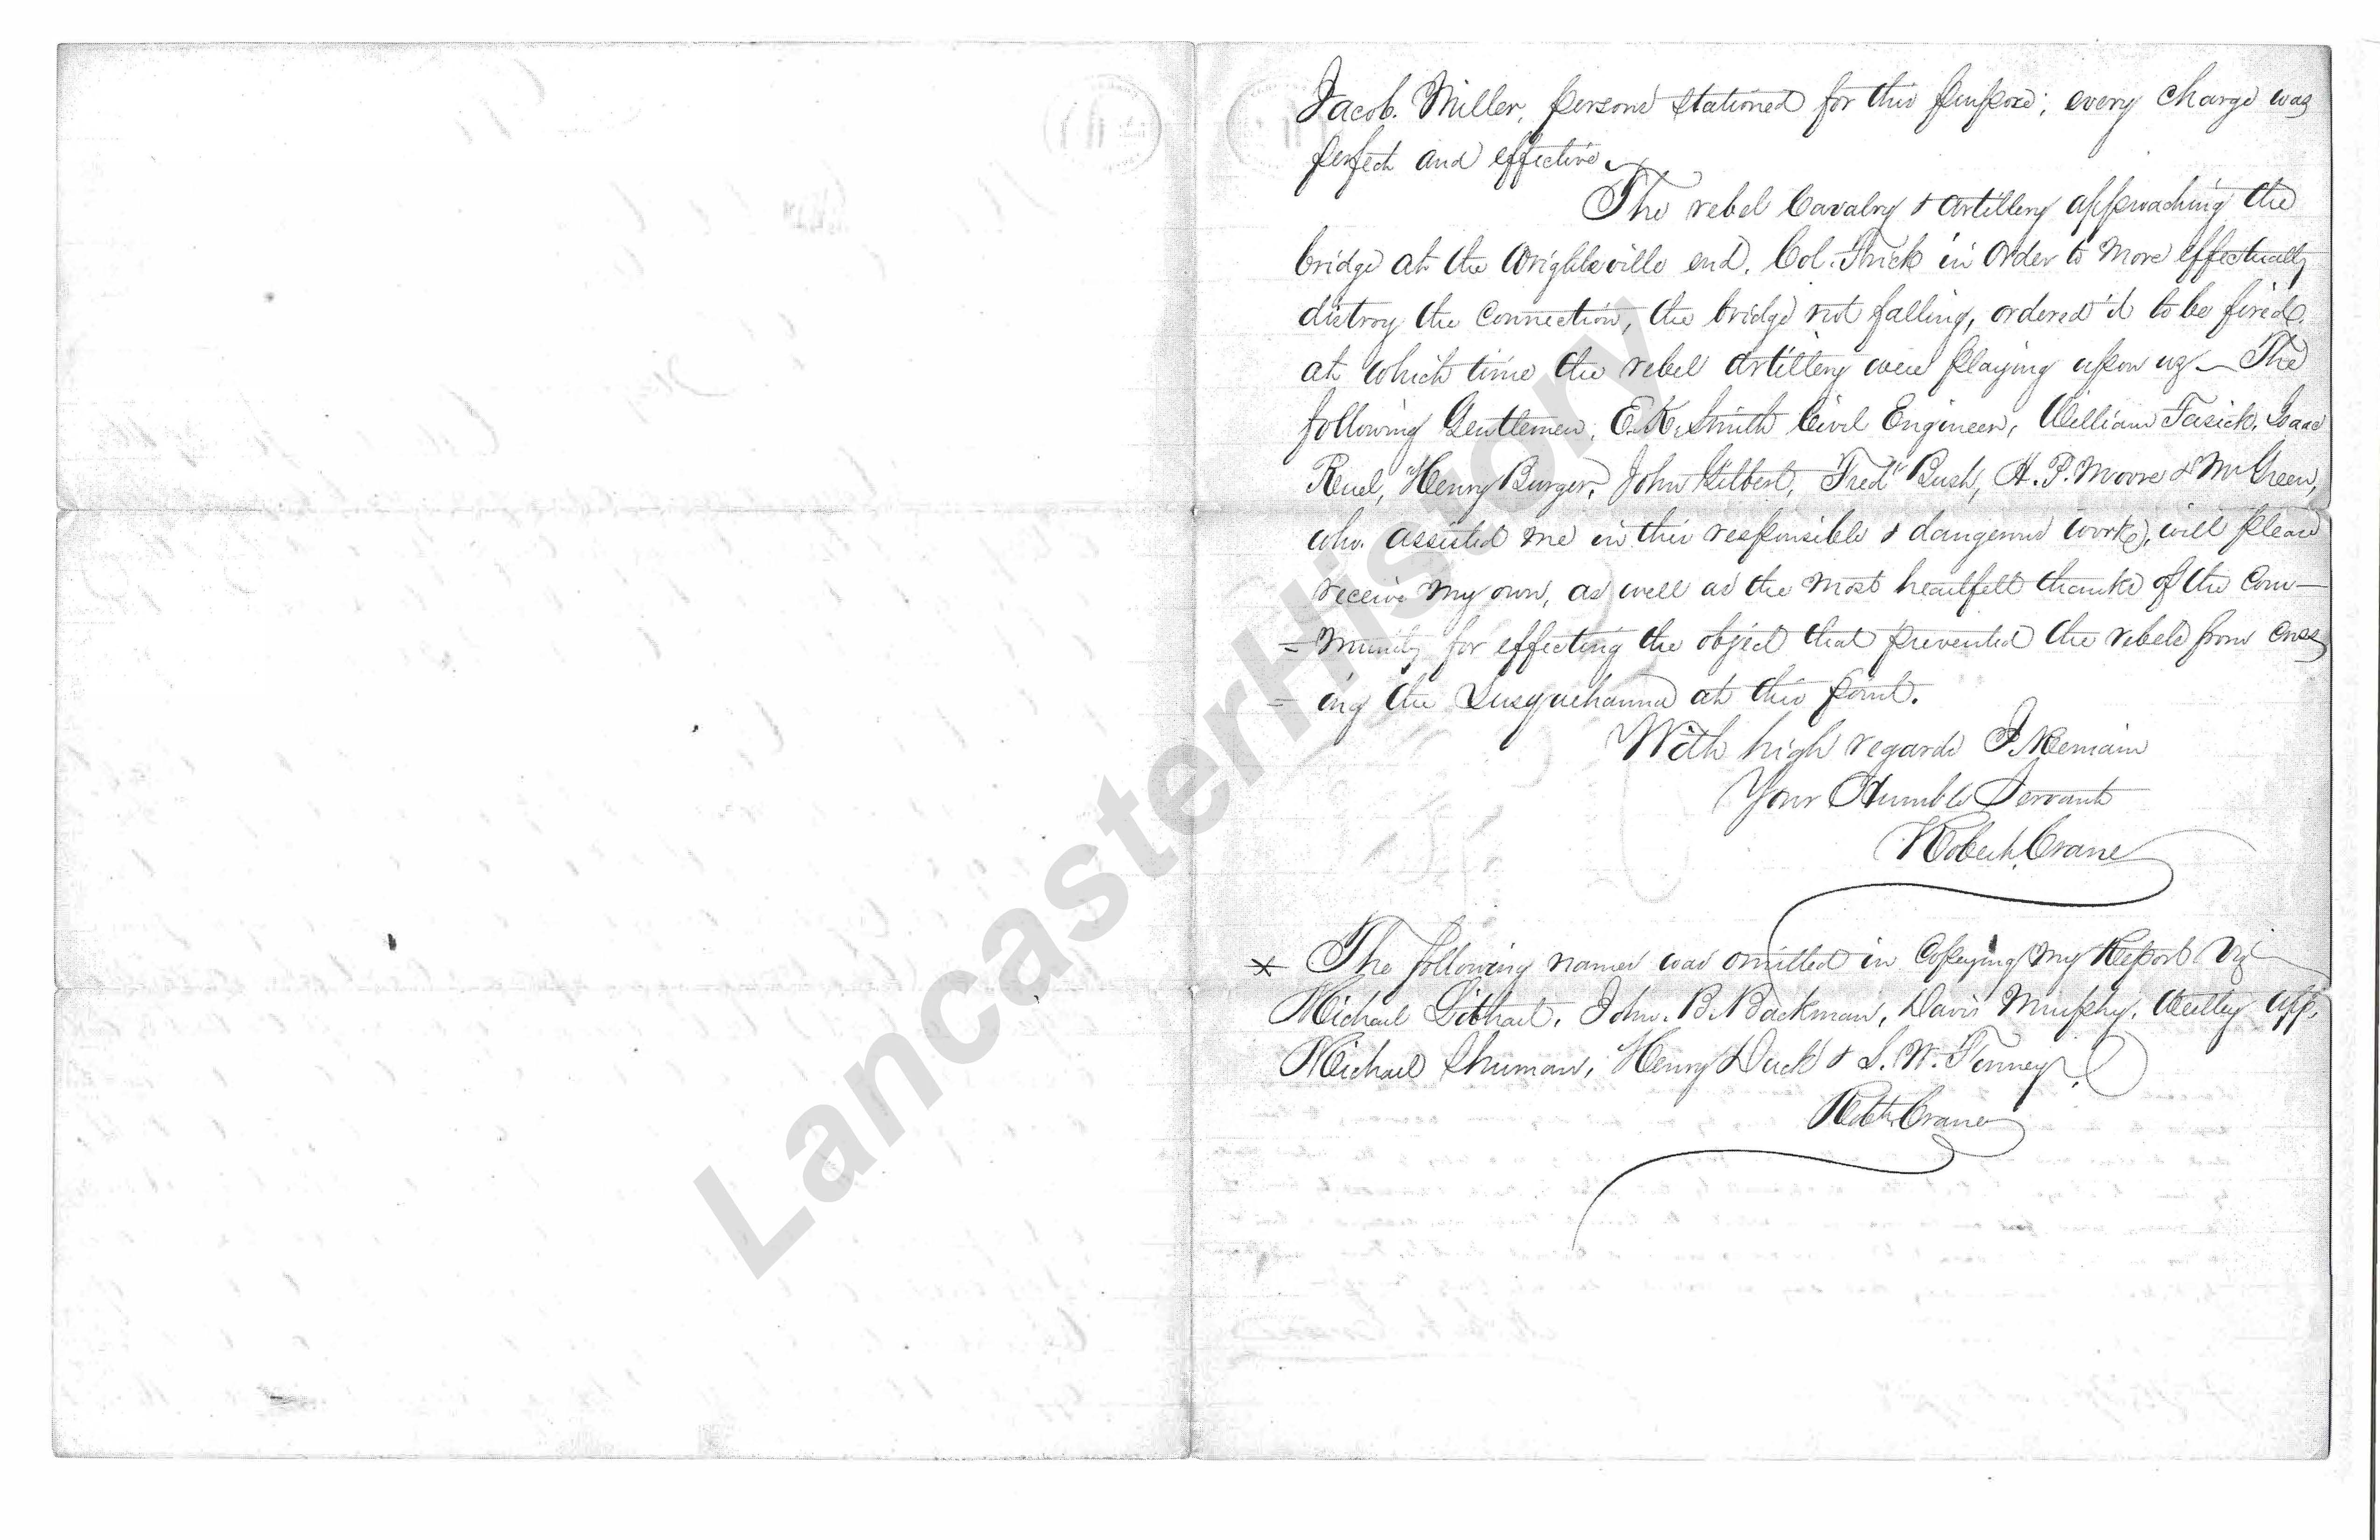 Jacob. Miller, persons stationed for this purpose; every charge was
perfect and effective
The rebel Cavalry & artillery approaching the
bridge at the Wrightsville end. Col. Frick in order to more effectually
distroy the connection, the bridge not falling, ordered it to be fired.
at which time the rebel artillery were playing upon us — The
following Gentlemen, E. K. Smith Civil Engineer, William Fasick, Isaac
Ruel, Henry Burger, John Gilbert, Fred^k Bush, H. P. Moore & Mr Green,
who. assisted me in this responsible & dangerous work, will please
receive my own, as well as the most heartfelt thanks of the Com—
=munity for effecting the object that prevented the rebels from cross
= ing the Susquehanna at this point.
With high regards I Remain
Your Humble Servant
Robert Crane
* The following names was omitted in Copeying my Report Viz
Michael Libhart, John. B. Bachman, Davis Murphy, Upp,
Michael Shuman, Henry Duck & S. W. Finney.
Robt Crane
LancasterHistory